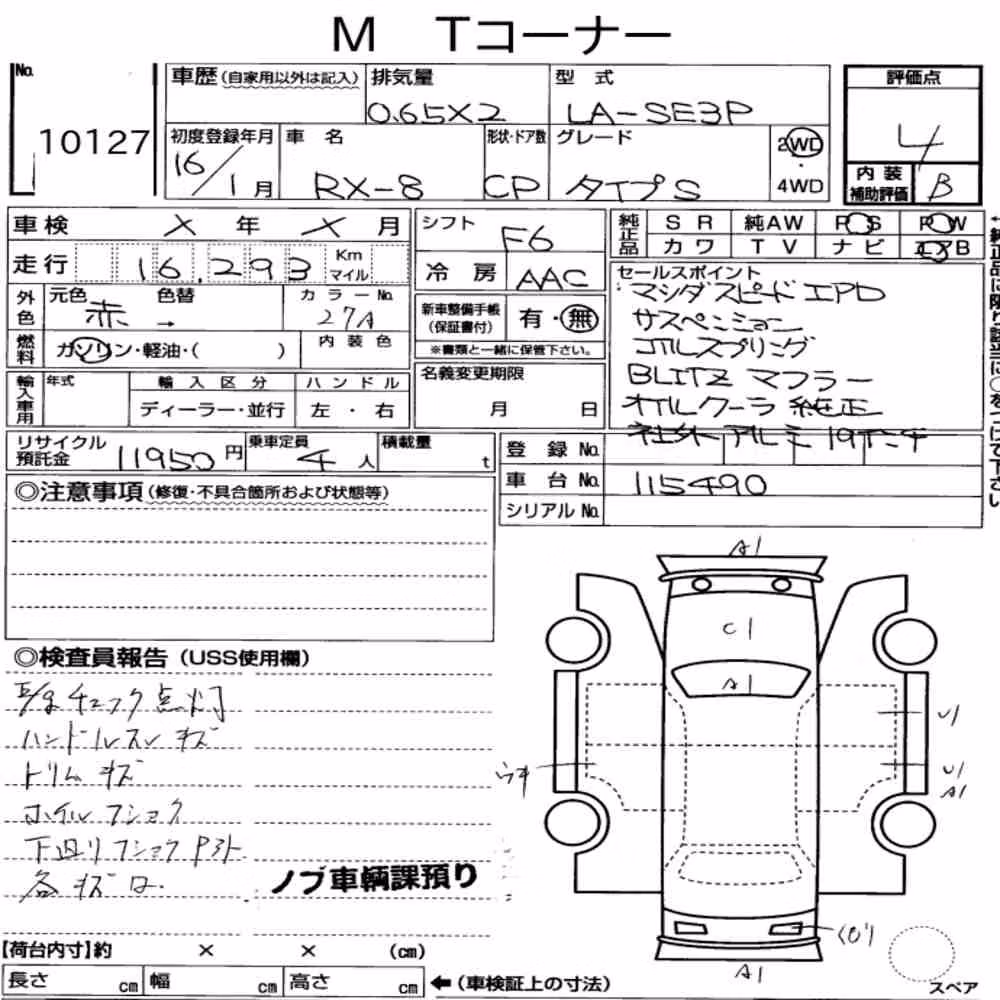 M Tコーナー
No. 10127
車歴(自家用以外は記入) 排気量 0.65X2 型式 LA-SE3P
初度登録年月 16/1月 車名 RX-8 形状・ドア数 CP グレード タイプS 2WD・4WD
評価点 4
内装補助評価 B
車検 X年X月
走行 16,293 Km マイル
シフト F6
冷房 AAC
純正品 SR 純AW PS PW
カワ TV ナビ エアB
←純正品に限り該当に○をつけて下さい
外色 元色 赤 色替 → カラーNo. 27A
燃料 ガソリン・軽油・( ) 内装色
新車整備手帳(保証書付) 有・無
※書類と一緒に保管下さい。
セールスポイント
マツダスピード エアロ
サスペンション
コイルスプリング
BLITZ マフラー
オイルクーラ 純正
社外アルミ 19インチ
輸入車用 年式 輸入区分 ディーラー・並行 ハンドル 左・右
名義変更期限 月 日
リサイクル預託金 11950円 乗車定員 4人 積載量 t
登録No.
車台No. 115490
シリアルNo.
◎注意事項(修復・不具合箇所および状態等)
◎検査員報告(USS使用欄)
チェック点灯
ハンドルスレ キズ
トリム キズ
ホイルフショク
下廻りフショク
各キズ
ノブ車輌課預り
A1
C1
A1
U1
ウキ
U1
A1
A1
スペア
【荷台内寸】約 × × (cm)
長さ cm 幅 cm 高さ cm ←(車検証上の寸法)